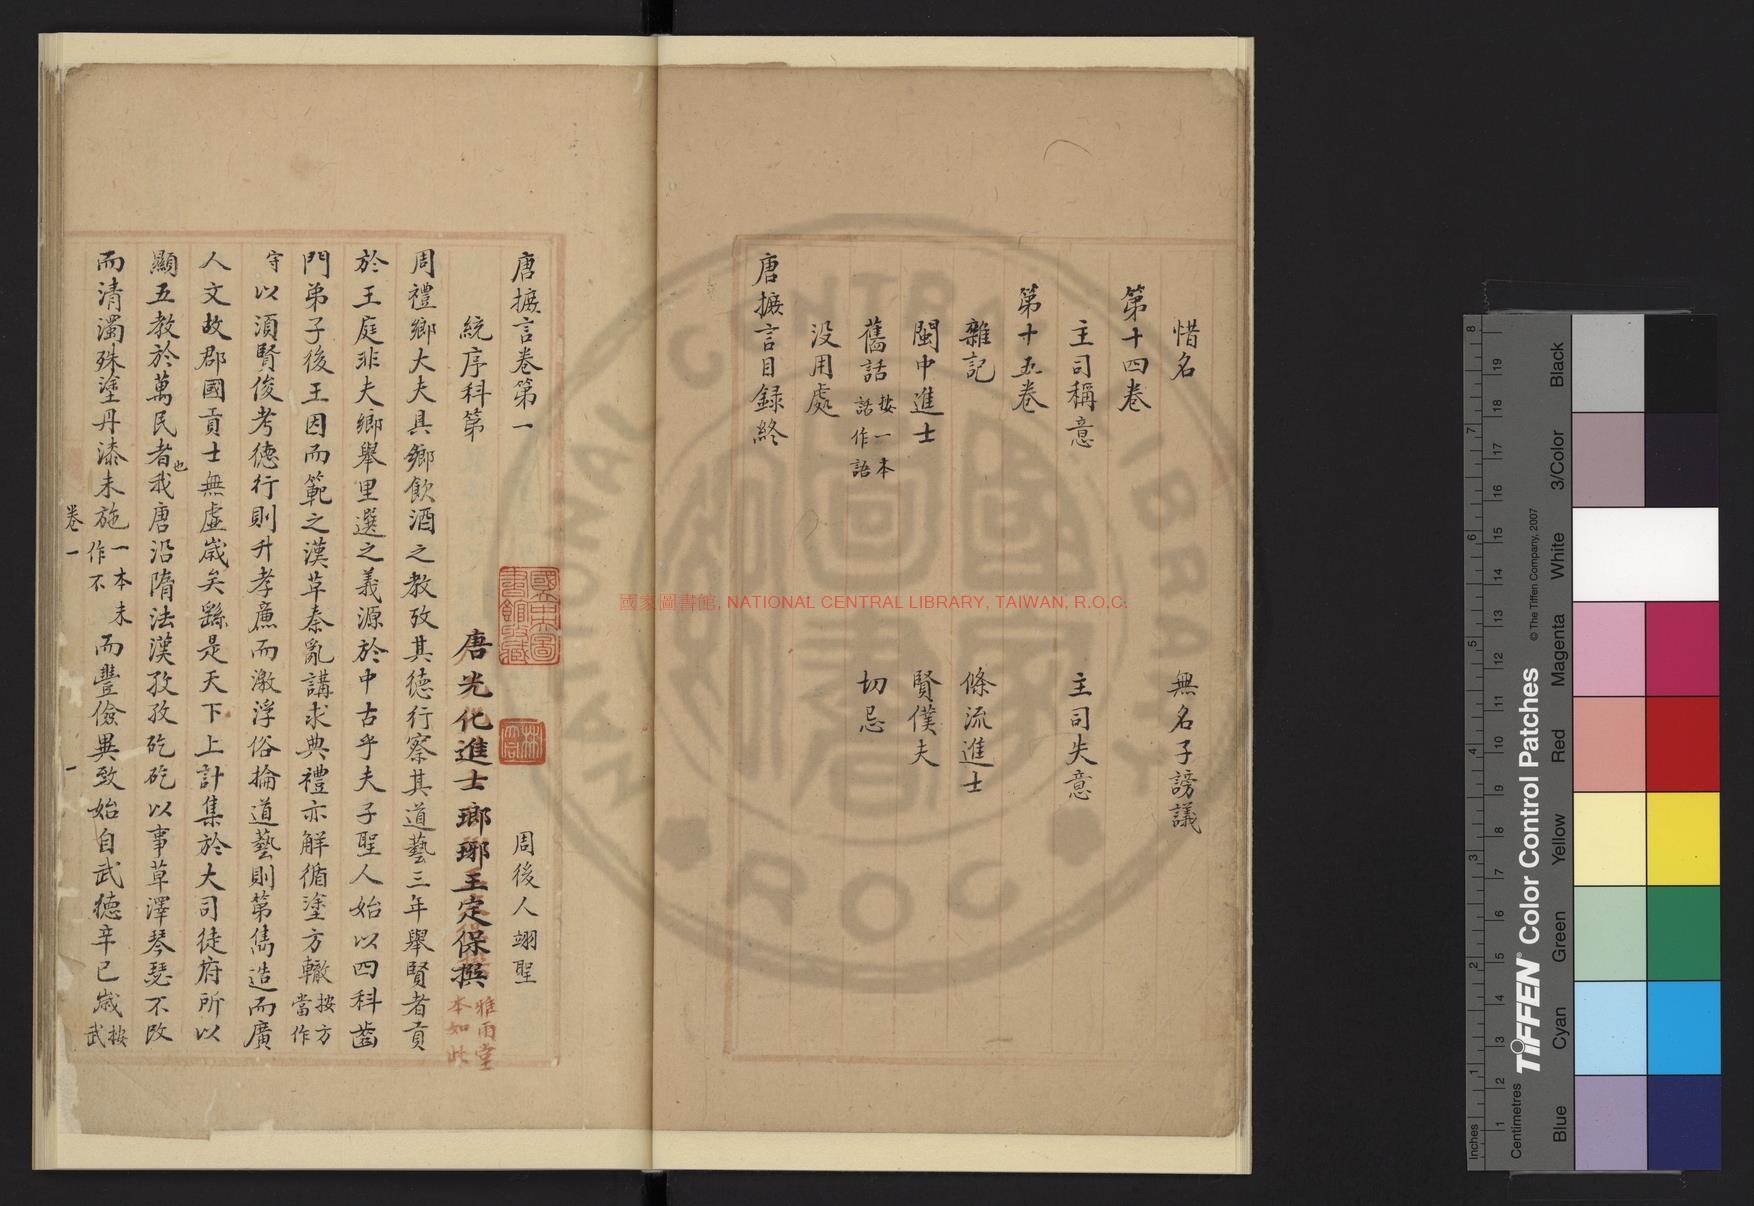 惜名　無名子謗議
第十四卷
主司稱意　主司失意
第十五卷
雜記　條流進士
閩中進士　賢僕夫
舊話按一本話作語　切忌
沒用處
唐摭言目録終
唐摭言卷第一　周後人翊聖
統序科第　唐光化進士瑯琊王定保撰雅雨堂本如此
周禮鄉大夫具鄉飲酒之教攷其德行察其道藝三年舉賢者貢
於王庭非夫鄉舉里選之義源於中古乎夫子聖人始以四科齒
門弟子後王因而範之漢草秦亂講求典禮亦解循塗方轍按方當作
守以須賢俊考德行則升孝廉而激浮俗掄道藝則第雋造而廣
人文故郡國貢士無虛歲矣繇是天下上計集於大司徒府所以
顯五教於萬民者也我唐沿隋法漢孜孜矻矻以事草澤琴瑟不改
而清濁殊塗丹漆未施一本未作不而豐儉異致始自武德辛巳歲按武
卷一
一
國立中央圖書館收藏
國家圖書館, NATIONAL CENTRAL LIBRARY, TAIWAN, R.O.C.
TIFFEN® Color Control Patches
© The Tiffen Company, 2007
Blue Cyan Green Yellow Red Magenta White 3/Color Black
Inches 1 2 3 4 5 6 7 8
Centimetres 1 2 3 4 5 6 7 8 9 10 11 12 13 14 15 16 17 18 19